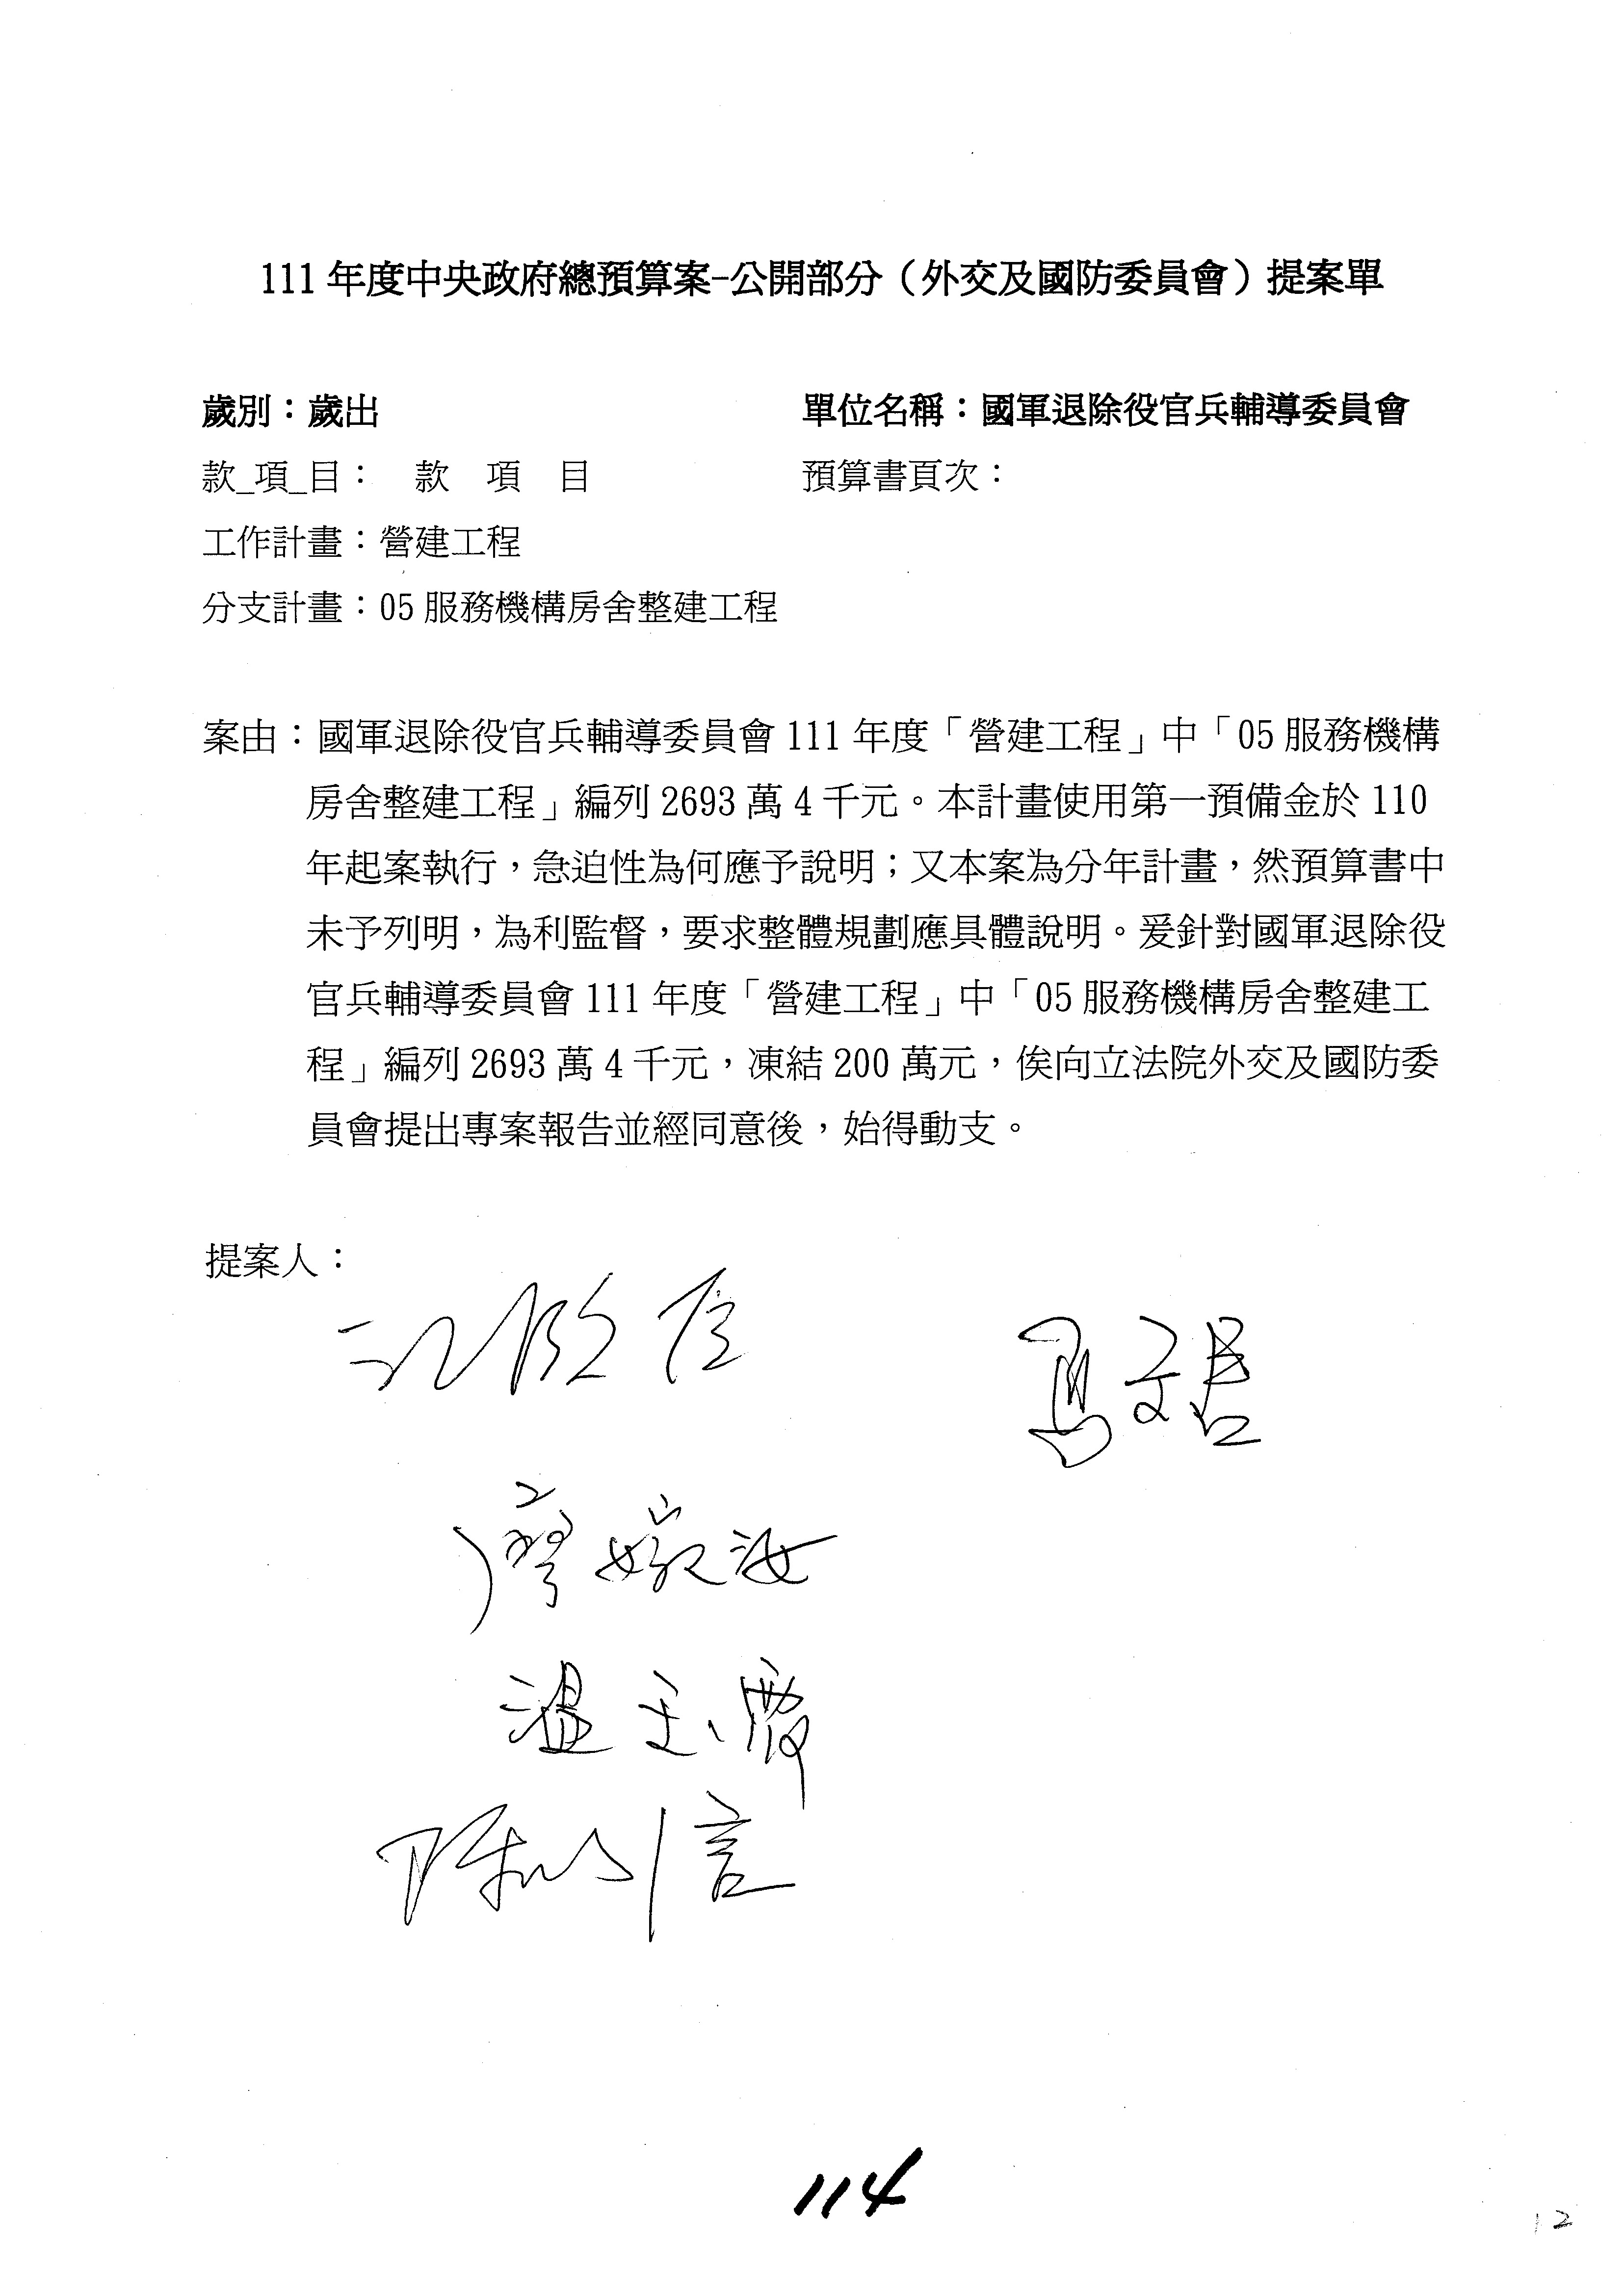 111 年度中央政府總預算案-公開部分（外交及國防委員會）提案單
歲別：歲出 單位名稱：國軍退除役官兵輔導委員會
款_項_目： 款 項 目 預算書頁次：
工作計畫：營建工程
分支計畫：05 服務機構房舍整建工程
案由：國軍退除役官兵輔導委員會 111 年度「營建工程」中「05 服務機構
房舍整建工程」編列 2693 萬 4 千元。本計畫使用第一預備金於 110
年起案執行，急迫性為何應予說明；又本案為分年計畫，然預算書中
未予列明，為利監督，要求整體規劃應具體說明。爰針對國軍退除役
官兵輔導委員會 111 年度「營建工程」中「05 服務機構房舍整建工
程」編列 2693 萬 4 千元，凍結 200 萬元，俟向立法院外交及國防委
員會提出專案報告並經同意後，始得動支。
提案人：
江啟臣
馬文君
廖婉汝
溫玉霞
陳以信
114
12